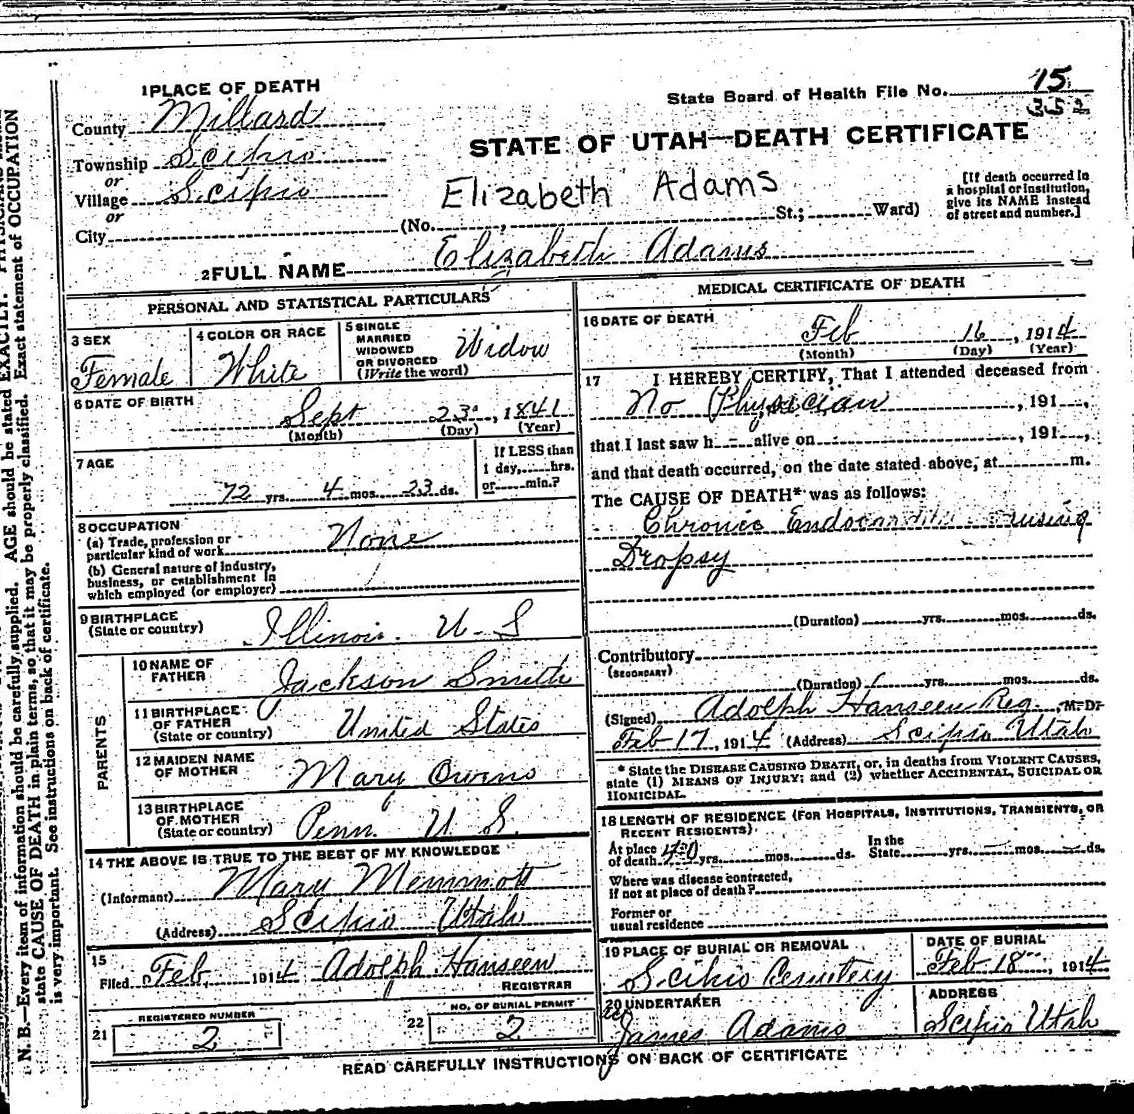 1 PLACE OF DEATH
State Board of Health File No. 15
352
County Millard
STATE OF UTAH—DEATH CERTIFICATE
Township Scipio
or
Village Scipio
or
City
Elizabeth Adams
(No. , St.; Ward)
[If death occurred in
a hospital or institution,
give its NAME instead
of street and number.]
2 FULL NAME Elizabeth Adams
PERSONAL AND STATISTICAL PARTICULARS
3 SEX
Female
4 COLOR OR RACE
White
5 SINGLE
MARRIED
WIDOWED
OR DIVORCED
(Write the word)
Widow
6 DATE OF BIRTH
Sept 23, 1841
(Month) (Day) (Year)
7 AGE
72 yrs. 4 mos. 23 ds.
If LESS than
1 day, hrs.
or min.?
8 OCCUPATION
(a) Trade, profession or
particular kind of work None
(b) General nature of industry,
business, or establishment in
which employed (or employer)
9 BIRTHPLACE
(State or country) Illinois. U-S
PARENTS
10 NAME OF
FATHER Jackson Smith
11 BIRTHPLACE
OF FATHER
(State or country) United States
12 MAIDEN NAME
OF MOTHER Mary Owens
13 BIRTHPLACE
OF MOTHER
(State or country) Penn. U S.
14 THE ABOVE IS TRUE TO THE BEST OF MY KNOWLEDGE
(Informant) Mary Memmott
(Address) Scipio Utah
15
Filed Feb, 1914 Adolph Hanseen
REGISTRAR
21
REGISTERED NUMBER
2
22
NO. OF BURIAL PERMIT
2
MEDICAL CERTIFICATE OF DEATH
16 DATE OF DEATH
Feb 16, 1914
(Month) (Day) (Year)
17 I HEREBY CERTIFY, That I attended deceased from
No Physician, 191 ,
that I last saw h - alive on , 191 ,
and that death occurred, on the date stated above, at m.
The CAUSE OF DEATH* was as follows:
Chronic Endocarditis causing
Dropsy
(Duration) yrs. mos. ds.
Contributory
(SECONDARY)
(Duration) yrs. mos. ds.
(Signed) Adolph Hanseen Reg. M. D.
Feb 17, 1914 (Address) Scipio Utah
* State the DISEASE CAUSING DEATH, or, in deaths from VIOLENT CAUSES,
state (1) MEANS OF INJURY; and (2) whether ACCIDENTAL, SUICIDAL OR
HOMICIDAL.
18 LENGTH OF RESIDENCE (FOR HOSPITALS, INSTITUTIONS, TRANSIENTS, OR
RECENT RESIDENTS)
At place
of death 40 yrs. mos. ds.
In the
State yrs. mos. ds.
Where was disease contracted,
if not at place of death?
Former or
usual residence
19 PLACE OF BURIAL OR REMOVAL
Scipio Cemetery
DATE OF BURIAL
Feb 18, 1914
20 UNDERTAKER
James Adams
ADDRESS
Scipio Utah
READ CAREFULLY INSTRUCTIONS ON BACK OF CERTIFICATE
N. B.—Every item of information should be carefully supplied. AGE should be stated EXACTLY.
state CAUSE OF DEATH in plain terms, so that it may be properly classified. Exact statement of OCCUPATION
is very important. See instructions on back of certificate.